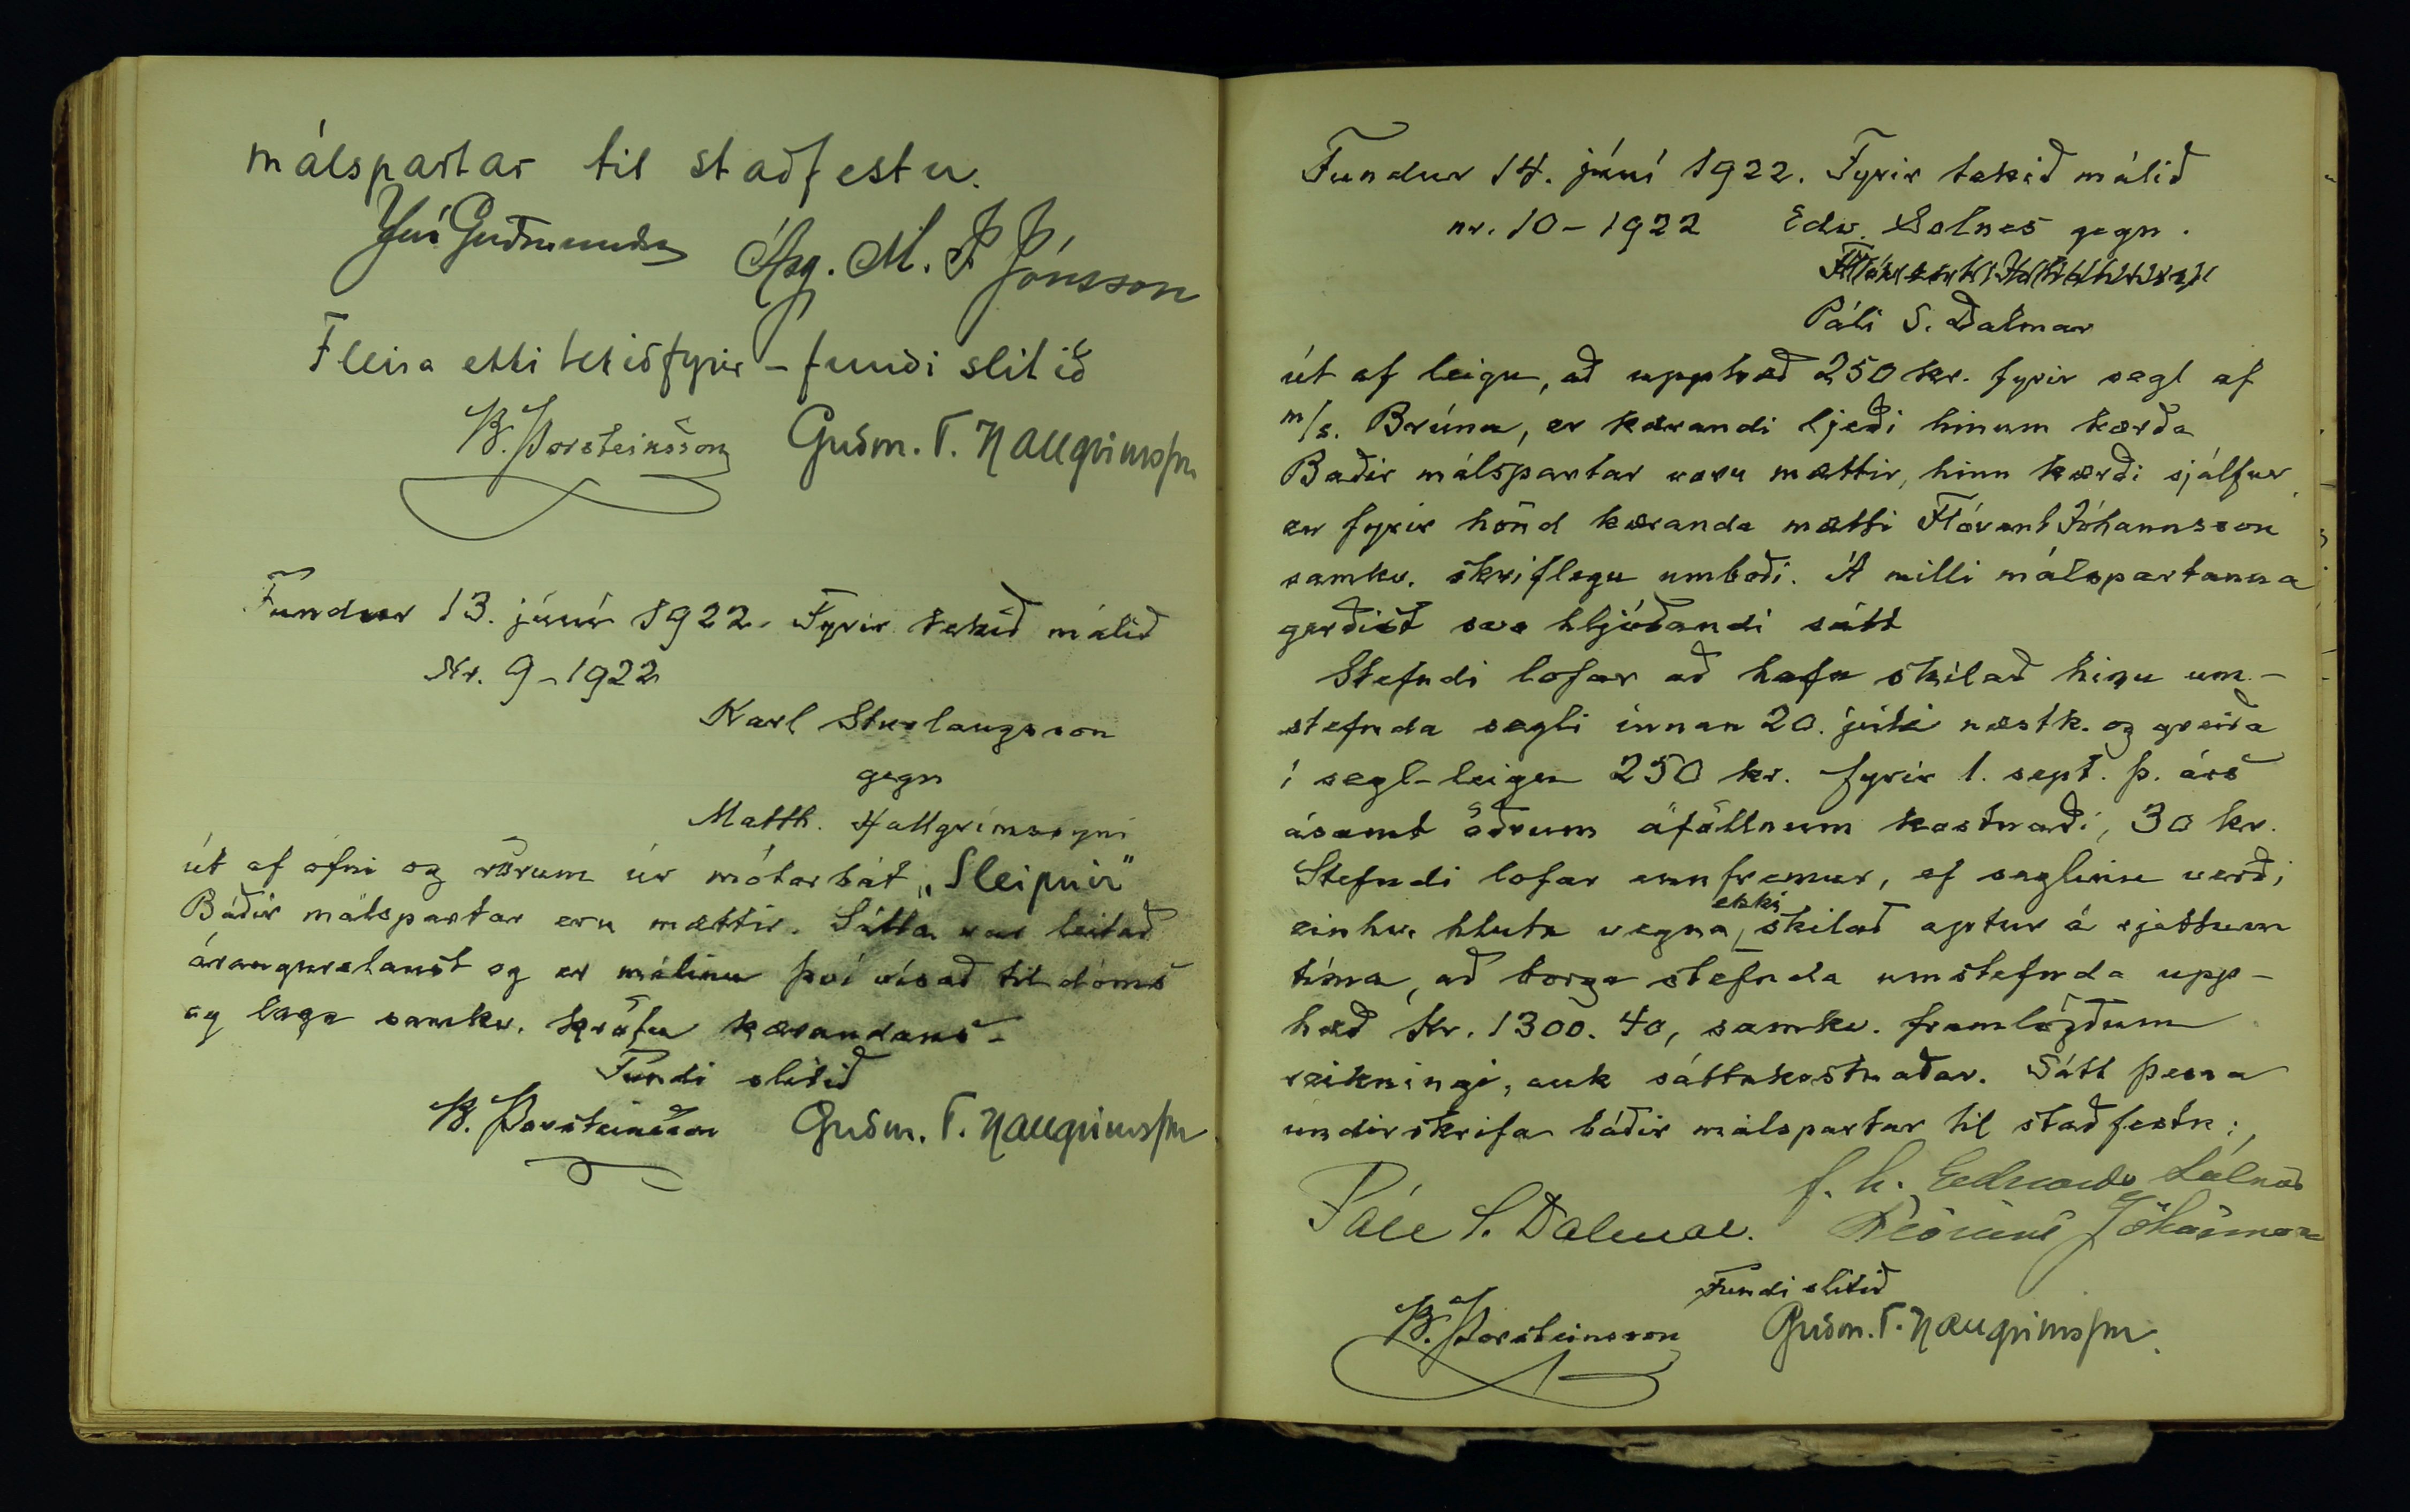 málspartar til staðfestu.
Guðmunds Ásg. M. P. Jónsson
Fleira ekki tekið fyrir – fundi slitið
B. Þorsteinsson Guðm. T. Hallgrímsson
Fundur 13. júní 1922. Fyrir tekið málið
Nr. 9–1922
Karl Sturlaugsson
gegn
Matth. Hallgrímssyni
út af ofni og rörum úr mótorbát „Sleipnir"
Báðir málspartar eru mættir. Sátta var leitað
árangurslaust og er málinu því vísað til dóms
og laga samkv. kröfu kærandans –
Fundi slitið
B. Þorsteinsson Guðm. T. Hallgrímsson
Fundur 14. júní 1922. Fyrir tekið málið
nr. 10–1922 Edw. Solnes gegn.
Páli S. Dalmar
út af leigu, að upphæð 250 kr. fyrir segl af
m/s. Brúna, er kærandi ljeði hinum kærða
Baðir málspartar voru mættir, hinn kærði sjálfur
en fyrir hönd kæranda mætti Flóvent Jóhannsson
samkv. skriflegu umboði. Á milli málspartanna
gerðist svo hljóðandi sátt
Stefndi lofar að hafa skilað hinu um-
stefnda segli innan 20. júlí næstk. og greiða
í segl-leigu 250 kr. fyrir 1. sept. þ. árs
ásamt öðrum áföllnum kostnaði, 30 kr.
Stefndi lofar ennfremur, ef seglinu verði
einhv. hluta vegna ekki skilað aptur á rjettum
tíma, að borga stefnda umstefnda upp-
hæð kr. 1300.40, samkv. framlögðum
reikningi, auk sáttakostnaðar. Sátt þessa
undirskrifa báðir málspartar til staðfestu:
f. h. Edwards Sólnes
Páll S. Dalmar. Flóvent Jóhannsson
Fundi slitið
B. Þorsteinsson Guðm. T. Hallgrímsson.